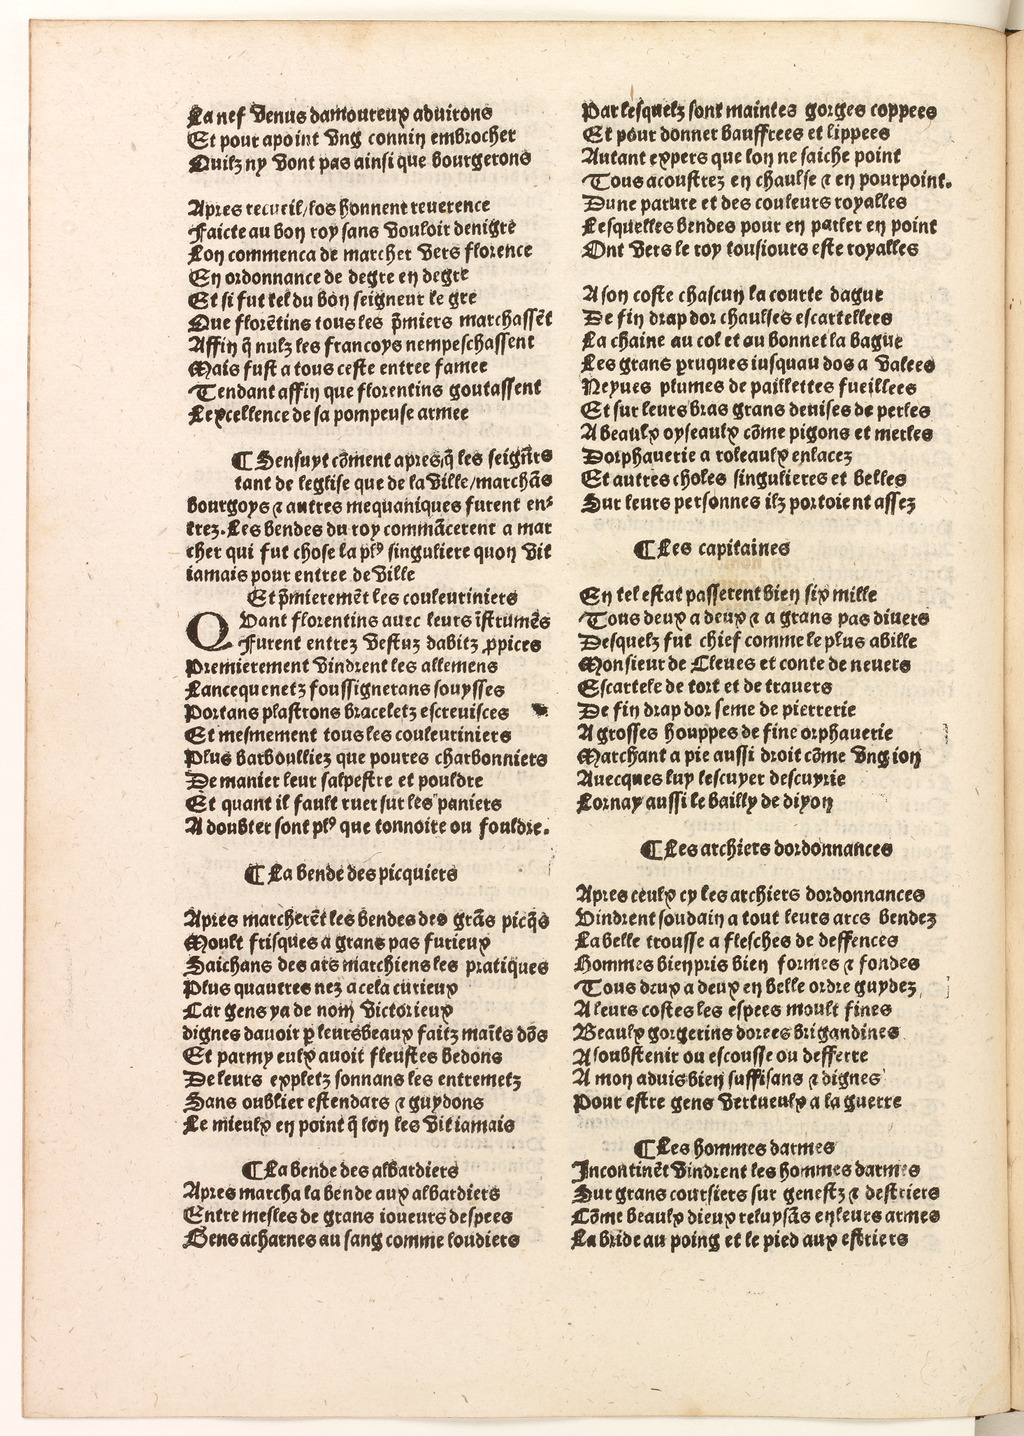 La nef Venus damoureux auirons
Et pour apoint vng connin embrocher
Quilz ny vont pas ainsi que bourgerons

Apres recueil/los honneur reuerence
Faicte au bon roy sans vouloir denigre
Lon commenca de marcher vers florence
En ordonnance de degre en degre
Et si fut tel du bon seigneur le gre
Que florētins tous les p̄miers marchassēt
Affin q̄ nulz les francoys nempeschassent
Mais fust a tous ceste entree famee
Tendant affin que florentins goutassent
Lexcellence de sa pompeuse armee

¶ Sensuyt cōment apres q̄ les seign̄rs
tant de leglise que de la ville/marchās
bourgoys ⁊ autres mequaniques furent en⸗
trez. Les bendes du roy commācerent a mar
cher qui fut chose la plꝰ singuliere quon vit
iamais pour entree de ville
Et p̄mieremēt les couleuriniers
QVant florentins auec leurs īstrumēs
Furent entrez vestuz dabitz ꝓpices
Premierement vindrent les allemens
Lancequenetz foussignerans souysses
Portans plastrons braceletz escreuisces
Et mesmement tous les couleuriniers
Plus barboulliez que poures charbonniers
De manier leur salpestre et pouldre
Et quant il fault ruer sur les paniers
A doubter sont plꝰ que tonnoire ou fouldre.

¶ La bende des picquiers

Apres marcherēt les bendes des grās picq̄s
Moult frisques a grans pas furieux
Saichans des ars marchiens les pratiques
Plus quautres nez a cela curieux
Car gens ya de nom victorieux
dignes dauoir ꝑ leurs beaux faitz maīts dōs
Et parmy eulx auoit fleustes bedons
De leurs expletz sonnans les entremetz
Sans oublier estendars ⁊ guydons
Le mieulx en point q̄ lon les vit iamais

¶ La bende des albardiers
Apres marcha la bende aux albardiers
Entre mesles de grans ioueurs despees
Gens acharnes au sang comme loudiers

Par lesquelz sont maintes gorges coppees
Et pour donner bauffrees et lippees
Autant expers que lon ne saiche point
Tous acoustrez en chaulse ⁊ en pourpoint.
Dune parure et des couleurs royalles
Lesquelles bendes pour en parler en point
Ont vers le roy tousiours este royalles

A son coste chascun la courte dague
De fin drap dor chaulses escartellees
La chaine au col et au bonnet la bague
Les grans pruques iusquau dos a valees
Neyues plumes de paillettes fueillees
Et sur leurs bras grans deuises de perles
A beaulx oyseaulx cōme pigons et merles
Dorphauerie a roleaulx enlacez
Et autres choses singulieres et belles
Sur leurs personnes ilz portoient assez

¶ Les capitaines

En tel estat passerent bien six mille
Tous deux a deux ⁊ a grans pas diuers
Desquelz fut chief comme le plus abille
Monsieur de Cleues et conte de neuers
Escartele de tort et de trauers
De fin drap dor seme de pierrerie
A grosses houppes de fine orphauerie
Marchant a pie aussi droit cōme vng ion
Auecques luy lescuyer descuyrie
Lornay aussi le bailly de diyon

¶ Les archiers dordonnances

Apres ceulx cy les archiers dordonnances
Vindrent soudain a tout leurs arcs bendez
La belle trousse a flesches de deffences
Hommes bien pris bien formes ⁊ fondes
Tous deux a deux en belle ordre guydez
A leurs costes les espees moult fines
Beaulx gorgerins dorees brigandines
A soubstenir ou escousse ou desserre
A mon aduis bien suffisans ⁊ dignes
Pour estre gens vertueulx a la guerre

¶ Les hommes darmes
Incontinēt vindrent les hommes darmes
Sur grans coursiers sur genestz ⁊ destriers
Cōme beaulx dieux reluysās en leurs armes
La bride au poing et le pied aux estriers